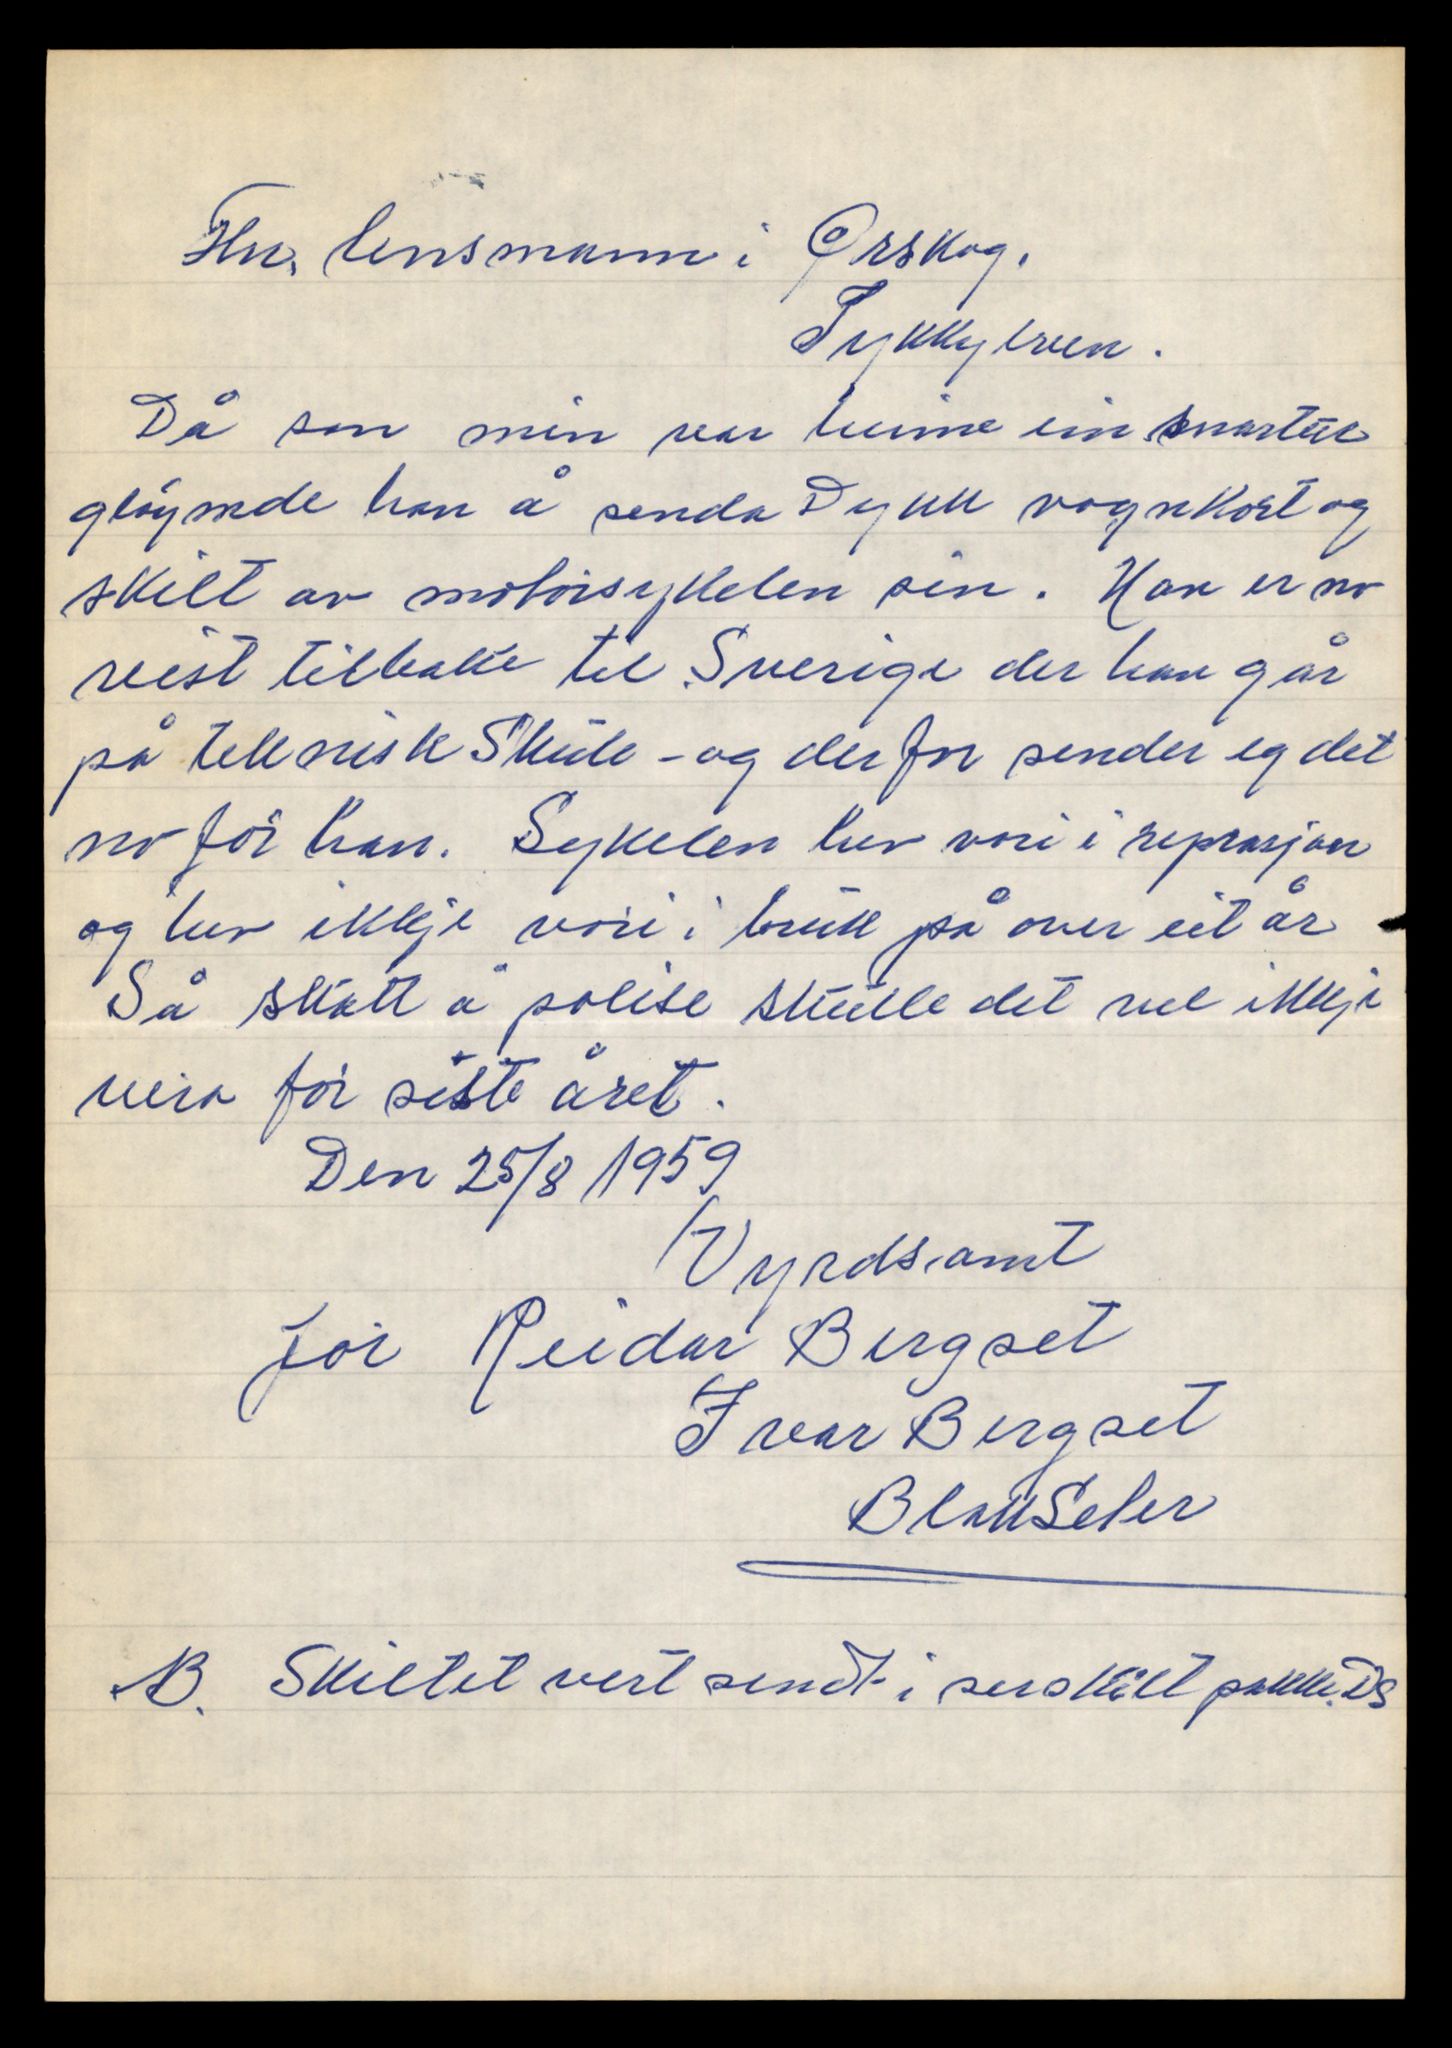 Hr. lensmann i Ørskog.
Sykkylven.
Då son min var heime ein snartur
gløymde han å senda Dykk vognkort og
skilt av motorsykelen sin. Han er no
reist tilbake til Sverige der han går
på teknisk Skule - og derfor sender eg det
no for han. Sykelen hev vori i reprasjon
og hev ikkje vori i bruk på over eit år
Så skatt å polise skulle det vel ikkje
vera for siste året.
Den 25/8 1959
Vyrdsamt
for Reidar Bergset
Ivar Bergset
Blakseter
NB. Skiltet vert sendt i serskilt pakke. DS